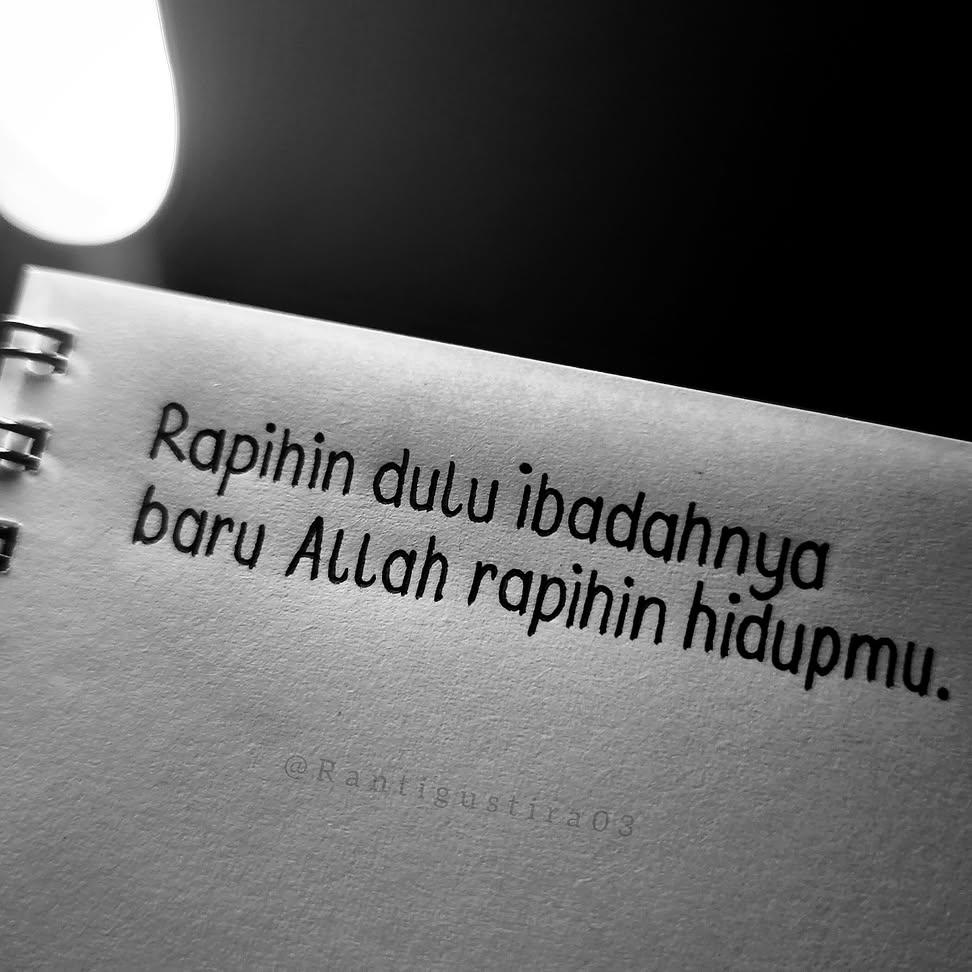 Rapihin dulu ibadahnya
baru Allah rapihin hidupmu.
@Rantigustira03